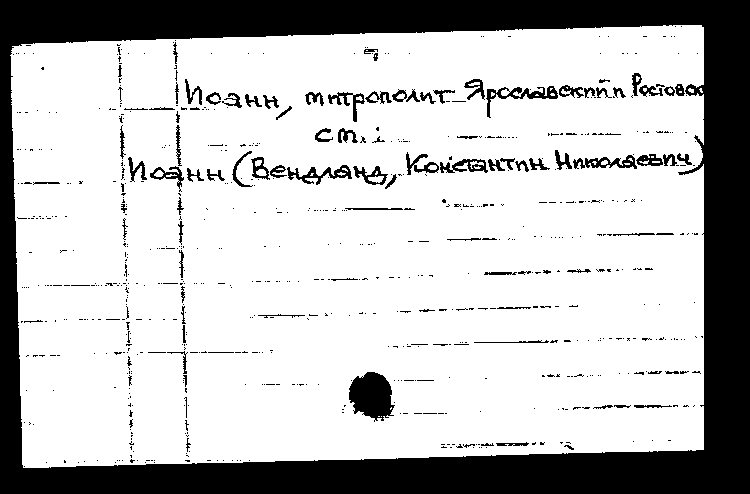 Иоанн, митрополит Ярославский и Ростовск
см.:
Иоанн (Вендланд, Константин Николаевич)